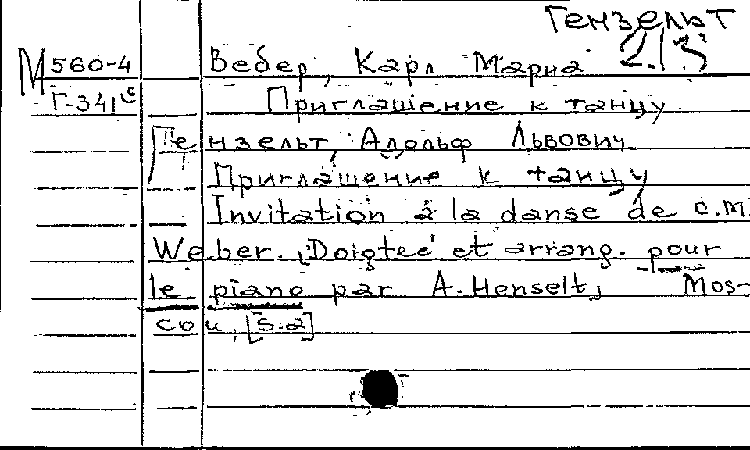 Гензельт
2/3
М 560-4 Вебер, Карл Мариа
Г-341с Приглашение к танцу
Гензельт, Адольф Львович.
Приглашение к танцу
Invitation à la danse de C.M.
Weber. Doigtée et arrang. pour
le piano par A. Henselt, Mos-
cou, [S.a]